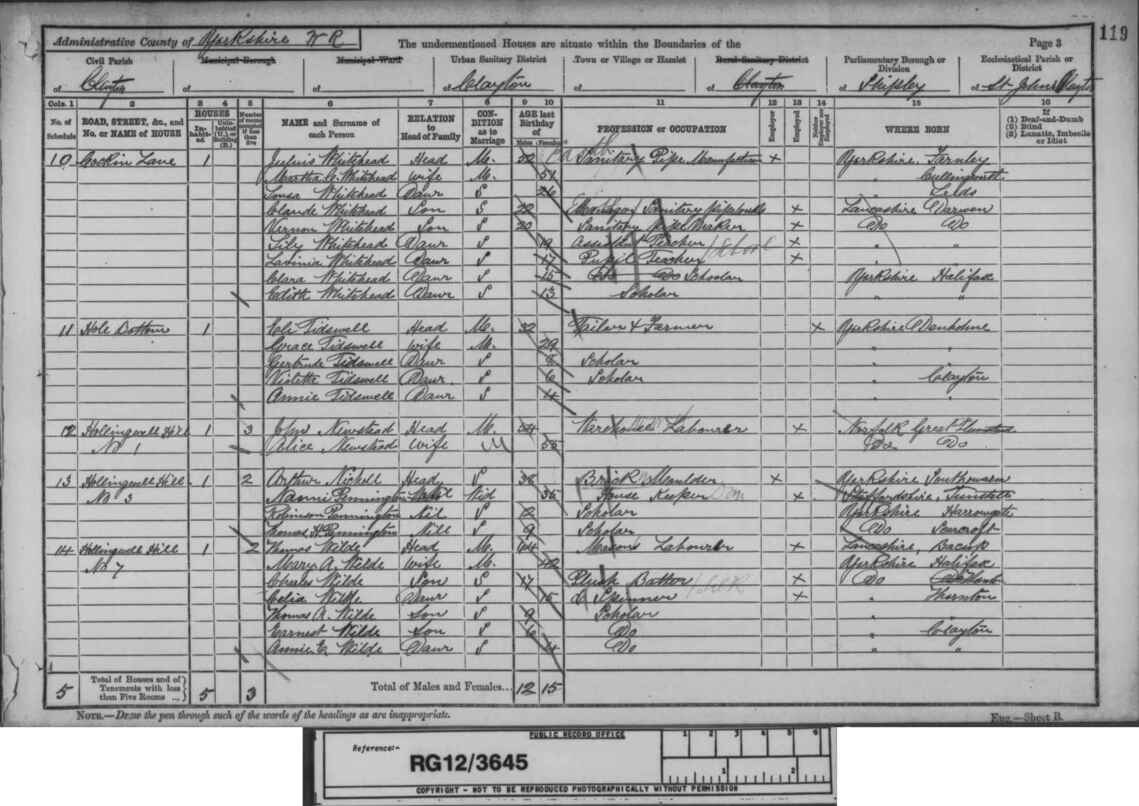 119
Administrative County of Yorkshire W R The undermentioned Houses are situate within the Boundaries of the Page 3
Civil Parish Municipal Borough Municipal Ward Urban Sanitary District Town or Village or Hamlet Rural Sanitary District Parliamentary Borough or Division Ecclesiastical Parish or District
of Clayton of of of Clayton of of Clayton of Shipley of St Johns Clayton
Cols. 1 2 3 4 5 6 7 8 9 10 11 12 13 14 15 16
No. of Schedule ROAD, STREET, &c., and No. or NAME of HOUSE HOUSES Inhabited Uninhabited (U.) or Building (B.) Number of rooms occupied if less than five NAME and Surname of each Person RELATION to Head of Family CONDITION as to Marriage AGE last Birthday of Males Females PROFESSION or OCCUPATION Employer Employed Neither Employer nor Employed WHERE BORN (1) Deaf-and-Dumb (2) Blind (3) Lunatic, Imbecile or Idiot
10 Cockin Lane 1 Julius Whitehead Head M. 52 Sanitary Pipe × Yorkshire Farnley
Martha A. Whitehead Wife M. 51 " Cullingworth
Whitehead Daur S 24 " Leeds
Claude Whitehead Son S 22 Sanitary × Lancashire Darwen
Vernon Whitehead Son S 20 Sanitary Pipe Maker × Do Do
Lily Whitehead Daur S 19 Assistant Teacher School × " "
Lavinia Whitehead Daur S 17 Pupil Teacher × " "
Clara Whitehead Daur S 15 Do Do Scholar Yorkshire Halifax
Edith Whitehead Daur S 13 Scholar " "
11 Hole Bottom 1 Eli Tidswell Head M. 32 Tailor & Farmer × Yorkshire Denholme
Grace Tidswell Wife M. 29 " "
Gertrude Tidswell Daur S 8 Scholar " "
Violetta Tidswell Daur. S 6 Scholar " Clayton
Annie Tidswell Daur S 4 " "
12 Hollingwell Hill 1 3 John Newstead Head M. Warehouse Labourer × Norfolk Great
No 1 Alice Newstead Wife M Do Do
13 Hollingwell Hill 1 2 Arthur Nicholl Head S 36 Brick Moulder × Yorkshire Southowram
No 3 Nanni Pennington Wid 35 House Keeper Dom × Staffordshire, Tunstall
Robinson Pennington S 12 Scholar Yorkshire Harrowgate
Thomas H. Pennington S 9 Scholar Do Scarcroft
14 Hollingwell Hill 1 2 Thomas Wilde Head M. 44 Masons Labourer × Lancashire, Bacup
No 7 Mary A. Wilde Wife M. 42 Yorkshire Halifax
Charles Wilde Son S 17 Plush Silk × Do
Celia Wilde Daur S 15 Spinner × " Thornton
Thomas A. Wilde Son S 9 Scholar "
Earnest Wilde Son S 6 Do " Clayton
Annie E. Wilde Daur S 4 Do " "
5 Total of Houses and of Tenements with less than Five Rooms 5 3 Total of Males and Females... 12 15
NOTE.—Draw the pen through such of the words of the headings as are inappropriate. Eng.—Sheet B.
PUBLIC RECORD OFFICE
Reference:- RG12/3645
1 2 3 4 5 6
1 2
COPYRIGHT - NOT TO BE REPRODUCED PHOTOGRAPHICALLY WITHOUT PERMISSION